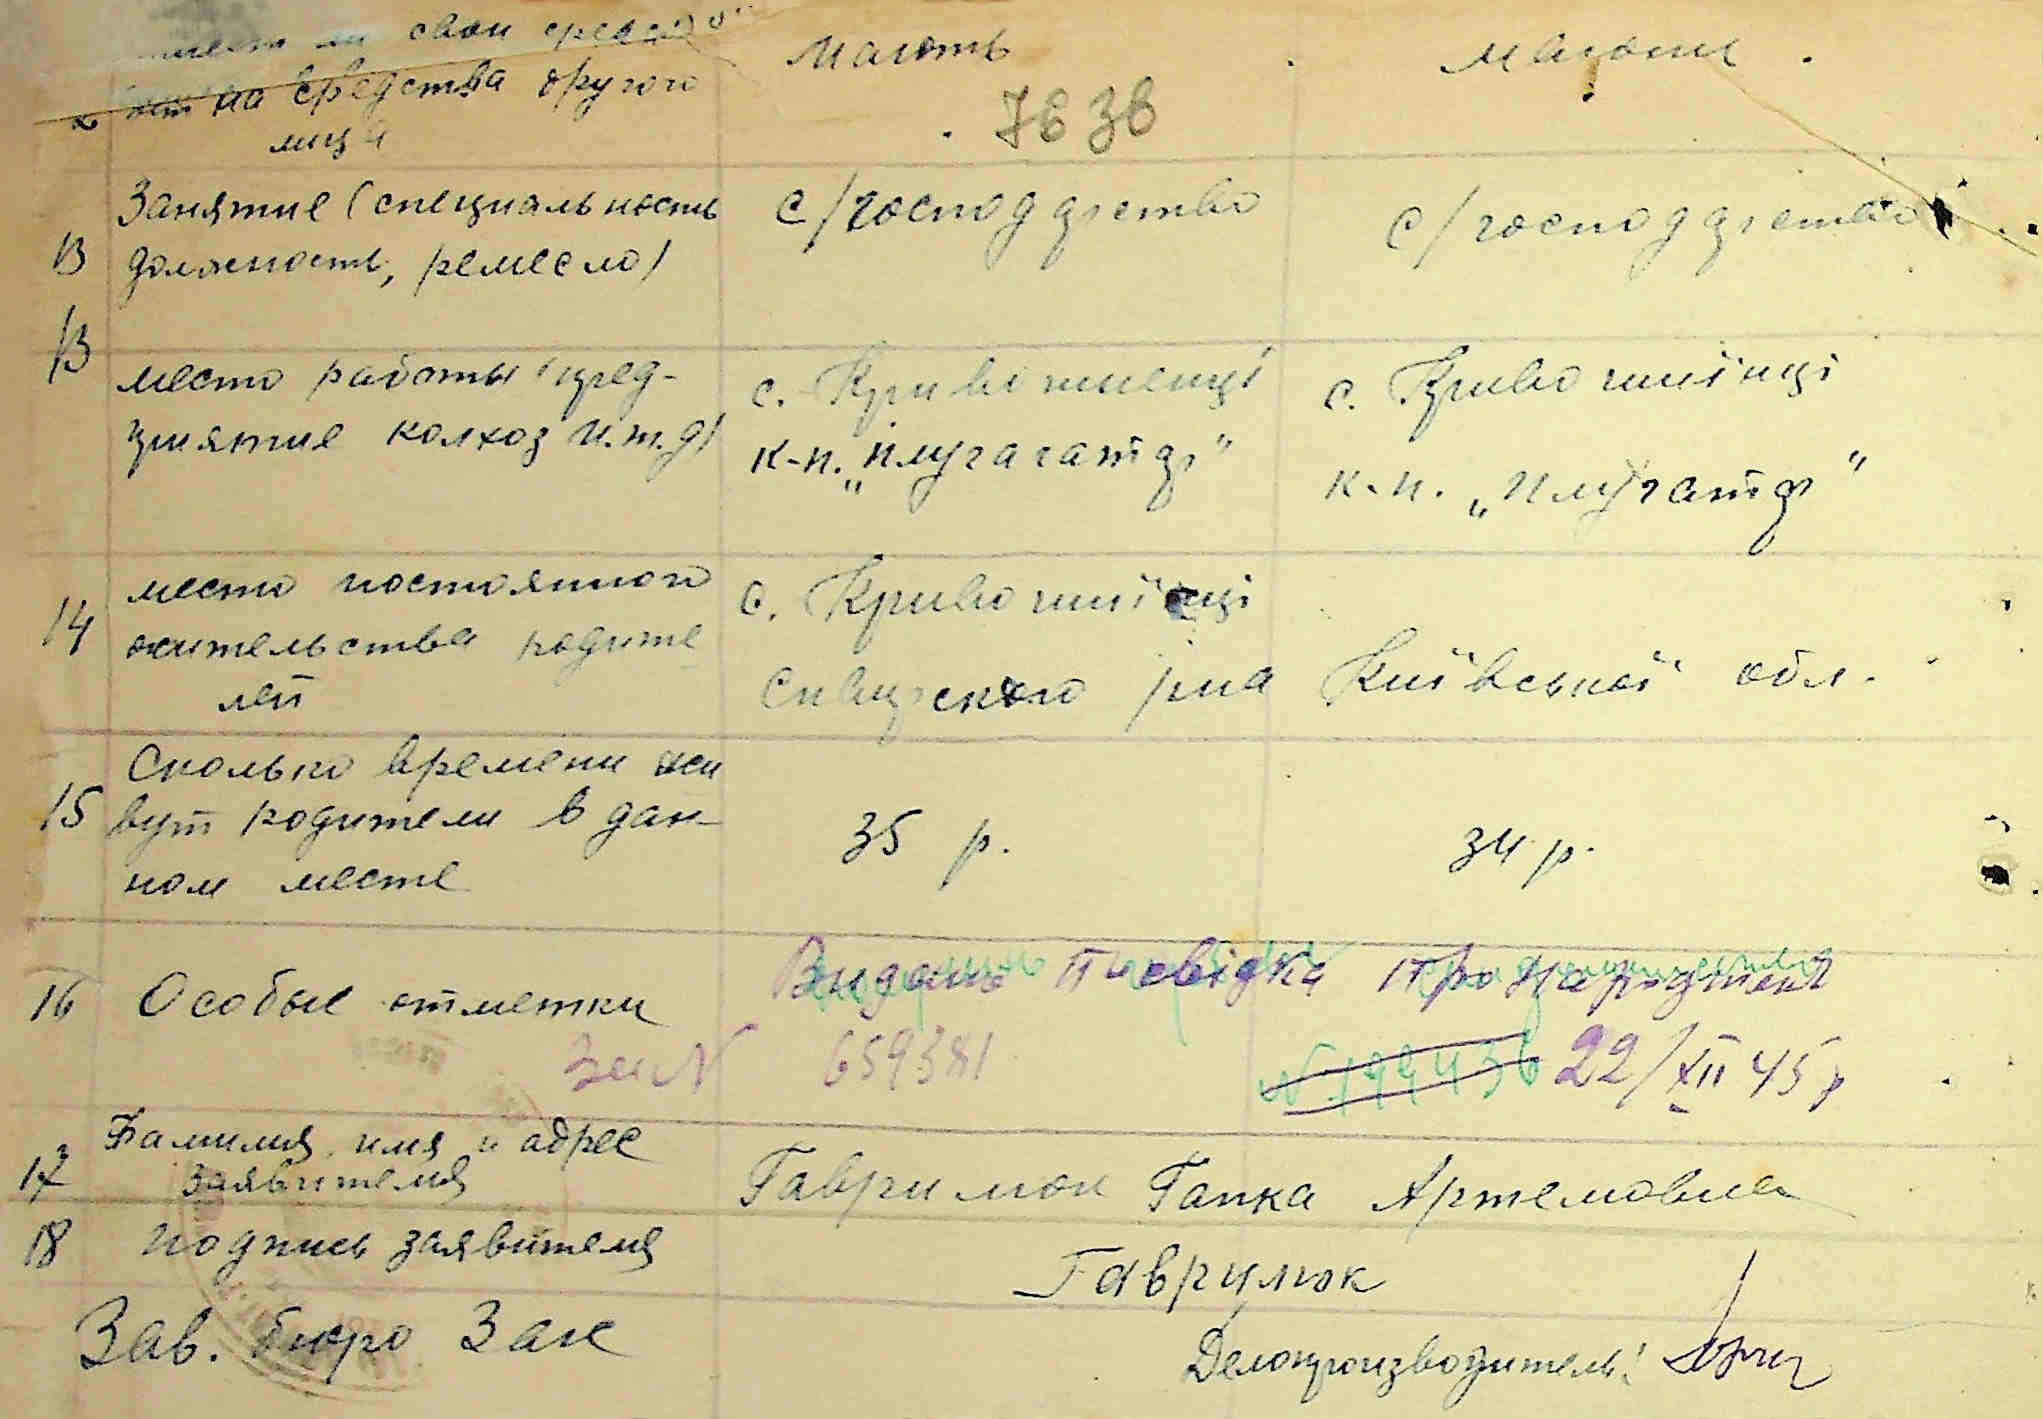 имеет ли свои средства
или на средства другого
лица
мають
мають.
7838
13
Занятие (специальность
должность, ремесло)
с/господарство
с/господарство
13
место работы (пред-
приятие колхоз и.т.д)
с. Кривошиенці
к-п. „Плугагатар"
с. Кривошиїнці
к.п. „Плугатар"
14
место постоянного
жительства родите
лей
с. Кривошиїнці
Сквирского р-на Київської обл.
15
Сколько времени жи
вут родители в дан-
ном месте
35 р.
34 р.
16 Особые отметки
Видано посвідка про народження
За N 659381
N 199436 22/XII 45 р
17 Фамилия, имя и адрес
заявителя
Гаврилюк Гапка Артемовна
18 подпись заявителя
Гаврулюк
Зав. бюро Зак
Делопроизводитель: